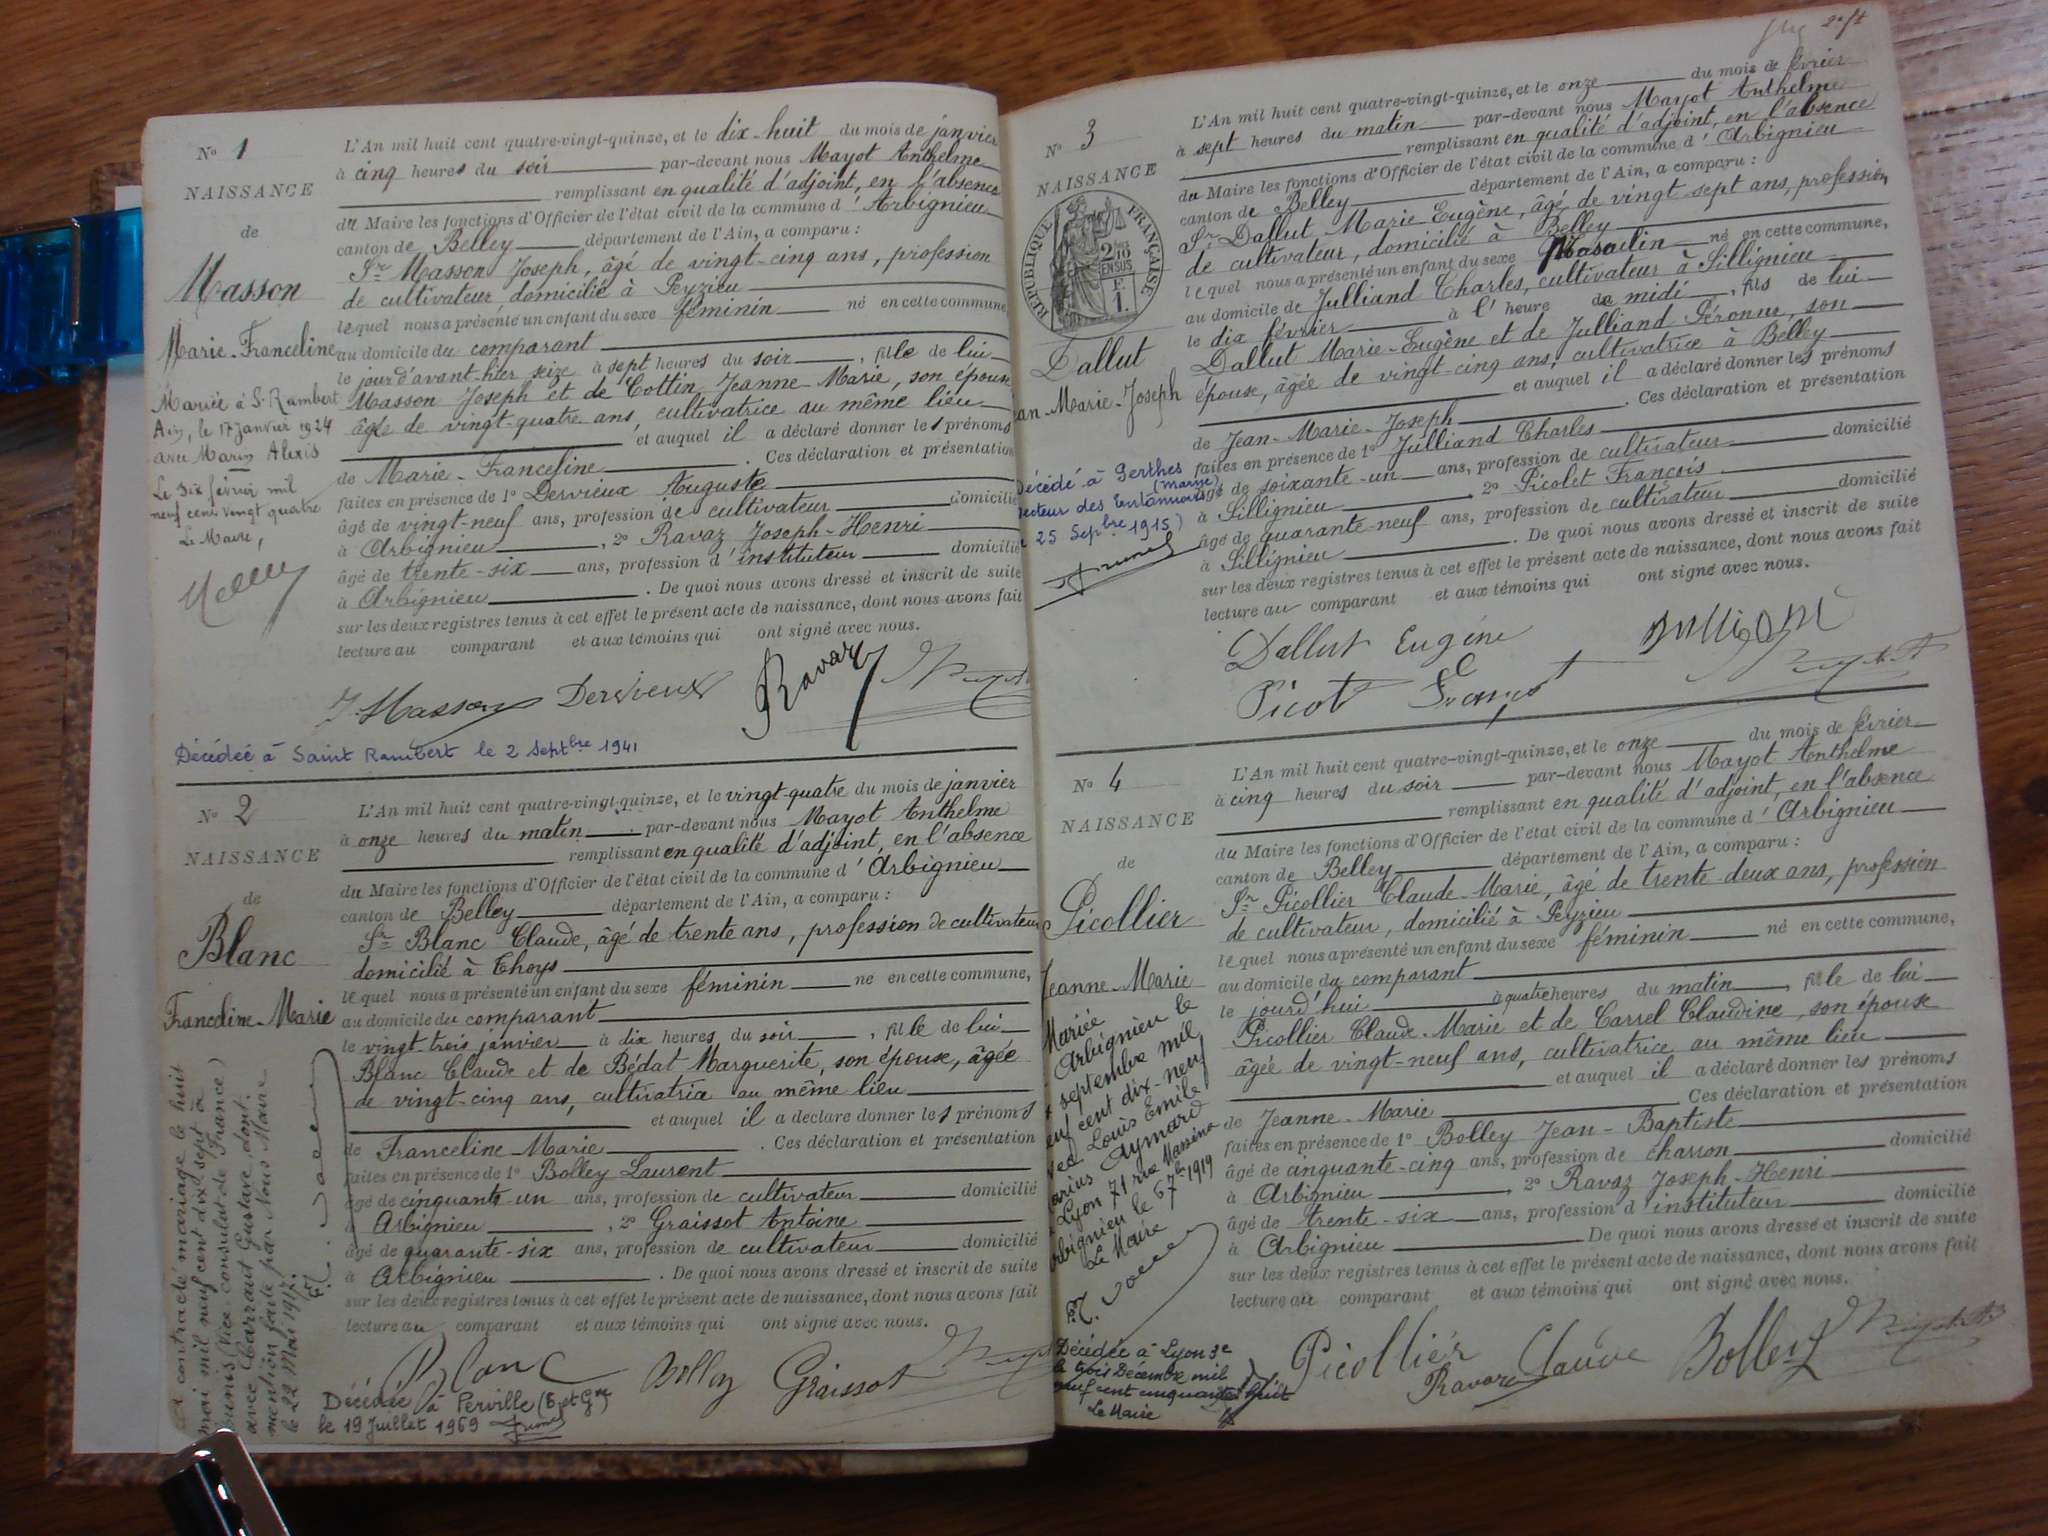 N° 1
NAISSANCE
de
Masson
Marie-Franceline
Mariée à St Rambert
Ain, le 17 janvier 1924
avec Marin Alexis
Le six février mil
neuf cent vingt quatre
Le Maire,
L'An mil huit cent quatre-vingt-quinze, et le dix-huit du mois de janvier
à cinq heures du soir par-devant nous Mayot Anthelme
remplissant en qualité d'adjoint, en l'absence
du Maire les fonctions d'Officier de l'état civil de la commune d'Arbignieu
canton de Belley département de l'Ain, a comparu :
Sr Masson Joseph, âgé de vingt-cinq ans, profession
de cultivateur, domicilié à Peyzieu
lequel nous a présenté un enfant du sexe féminin né en cette commune
au domicile du comparant
le jour d'avant-hier seize à sept heures du soir, fille de lui
Masson Joseph et de Cottin Jeanne-Marie, son épouse
âgée de vingt-quatre ans, cultivatrice au même lieu
et auquel il a déclaré donner les prénoms
de Marie-Franceline. Ces déclaration et présentation
faites en présence de 1° Dervieux Auguste
âgé de vingt-neuf ans, profession de cultivateur domicilié
à Arbignieu, 2° Ravaz Joseph-Henri
âgé de trente-six ans, profession d'instituteur domicilié
à Arbignieu. De quoi nous avons dressé et inscrit de suite
sur les deux registres tenus à cet effet le présent acte de naissance, dont nous avons fait
lecture au comparant et aux témoins qui ont signé avec nous.
J. Masson Dervieux Ravaz
Décédée à Saint Rambert le 2 Septbre 1941
N° 2
NAISSANCE
de
Blanc
Franceline-Marie
a contracté mariage le huit
mai mil neuf cent dix sept à
Tunis (Vice-consulat de France)
avec Carrait Gustave, dont
mention faite par Nous Maire
le 22 Mai 1917.
L'An mil huit cent quatre-vingt-quinze, et le vingt-quatre du mois de janvier
à onze heures du matin par-devant nous Mayot Anthelme
remplissant en qualité d'adjoint, en l'absence
du Maire les fonctions d'Officier de l'état civil de la commune d'Arbignieu
canton de Belley département de l'Ain, a comparu :
Sr Blanc Claude, âgé de trente ans, profession de cultivateur
domicilié à Thoys
lequel nous a présenté un enfant du sexe féminin né en cette commune,
au domicile du comparant
le vingt-trois janvier à dix heures du soir, fille de lui
Blanc Claude et de Bédat Marguerite, son épouse, âgée
de vingt-cinq ans, cultivatrice au même lieu
et auquel il a déclaré donner les prénoms
de Franceline Marie. Ces déclaration et présentation
faites en présence de 1° Bolley Laurent
âgé de cinquante un ans, profession de cultivateur domicilié
à Arbignieu, 2° Graissot Antoine
âgé de quarante-six ans, profession de cultivateur domicilié
à Arbignieu. De quoi nous avons dressé et inscrit de suite
sur les deux registres tenus à cet effet le présent acte de naissance, dont nous avons fait
lecture au comparant et aux témoins qui ont signé avec nous.
Blanc Bolley Graissot
Décédée à Perville (T et Gne)
le 19 Juillet 1969
2e ft
N° 3
NAISSANCE
RÉPUBLIQUE FRANÇAISE
2/10 EN SUS
F. 1.
Dallut
an-Marie-Joseph
Décédé à Perthes
(Marne)
secteur des Entonnoirs
25 Sepbre 1915)
L'An mil huit cent quatre-vingt-quinze, et le onze du mois de février
à sept heures du matin par-devant nous Mayot Anthelme
remplissant en qualité d'adjoint, en l'absence
du Maire les fonctions d'Officier de l'état civil de la commune d'Arbignieu
canton de Belley département de l'Ain, a comparu :
Sr Dallut Marie Eugène, âgé de vingt-sept ans, profession
de cultivateur, domicilié à Belley
lequel nous a présenté un enfant du sexe Masculin né en cette commune,
au domicile de Julliand Charles, cultivateur à Sillignieu
le dix février à l'heure de midi, fils de lui
Dallut Marie-Eugène et de Julliand Péronne, son
épouse, âgée de vingt-cinq ans, cultivatrice à Belley
et auquel il a déclaré donner les prénoms
de Jean-Marie-Joseph. Ces déclaration et présentation
faites en présence de 1° Julliand Charles
âgé de soixante-un ans, profession de cultivateur domicilié
à Sillignieu, 2° Picolet François
âgé de quarante-neuf ans, profession de cultivateur domicilié
à Sillignieu. De quoi nous avons dressé et inscrit de suite
sur les deux registres tenus à cet effet le présent acte de naissance, dont nous avons fait
lecture au comparant et aux témoins qui ont signé avec nous.
Dallut Eugène
N° 4
NAISSANCE
de
Picollier
Jeanne-Marie
Mariée
Arbignieu le
septembre mil
neuf cent dix-neuf
avec Louis Emile
Marius Aymard
Lyon 71 rue Massena
Arbignieu le 6 7bre 1919
Le Maire
Décédée à Lyon 3e
le trois Décembre mil
neuf cent cinquante huit
Le Maire
L'An mil huit cent quatre-vingt-quinze, et le onze du mois de février
à cinq heures du soir par-devant nous Mayot Anthelme
remplissant en qualité d'adjoint, en l'absence
du Maire les fonctions d'Officier de l'état civil de la commune d'Arbignieu
canton de Belley département de l'Ain, a comparu :
Sr Picollier Claude-Marie, âgé de trente-deux ans, profession
de cultivateur, domicilié à Peyzieu
lequel nous a présenté un enfant du sexe féminin né en cette commune,
au domicile du comparant
le jourd'hui à quatre heures du matin, fille de lui
Picollier Claude-Marie et de Carrel Claudine, son épouse
âgée de vingt-neuf ans, cultivatrice au même lieu
et auquel il a déclaré donner les prénoms
de Jeanne-Marie Ces déclaration et présentation
faites en présence de 1° Bolley Jean-Baptiste
âgé de cinquante-cinq ans, profession de charron domicilié
à Arbignieu, 2° Ravaz Joseph-Henri
âgé de trente-six ans, profession d'instituteur domicilié
à Arbignieu De quoi nous avons dressé et inscrit de suite
sur les deux registres tenus à cet effet le présent acte de naissance, dont nous avons fait
lecture au comparant et aux témoins qui ont signé avec nous.
Picollier Claude Bolley
Ravaz